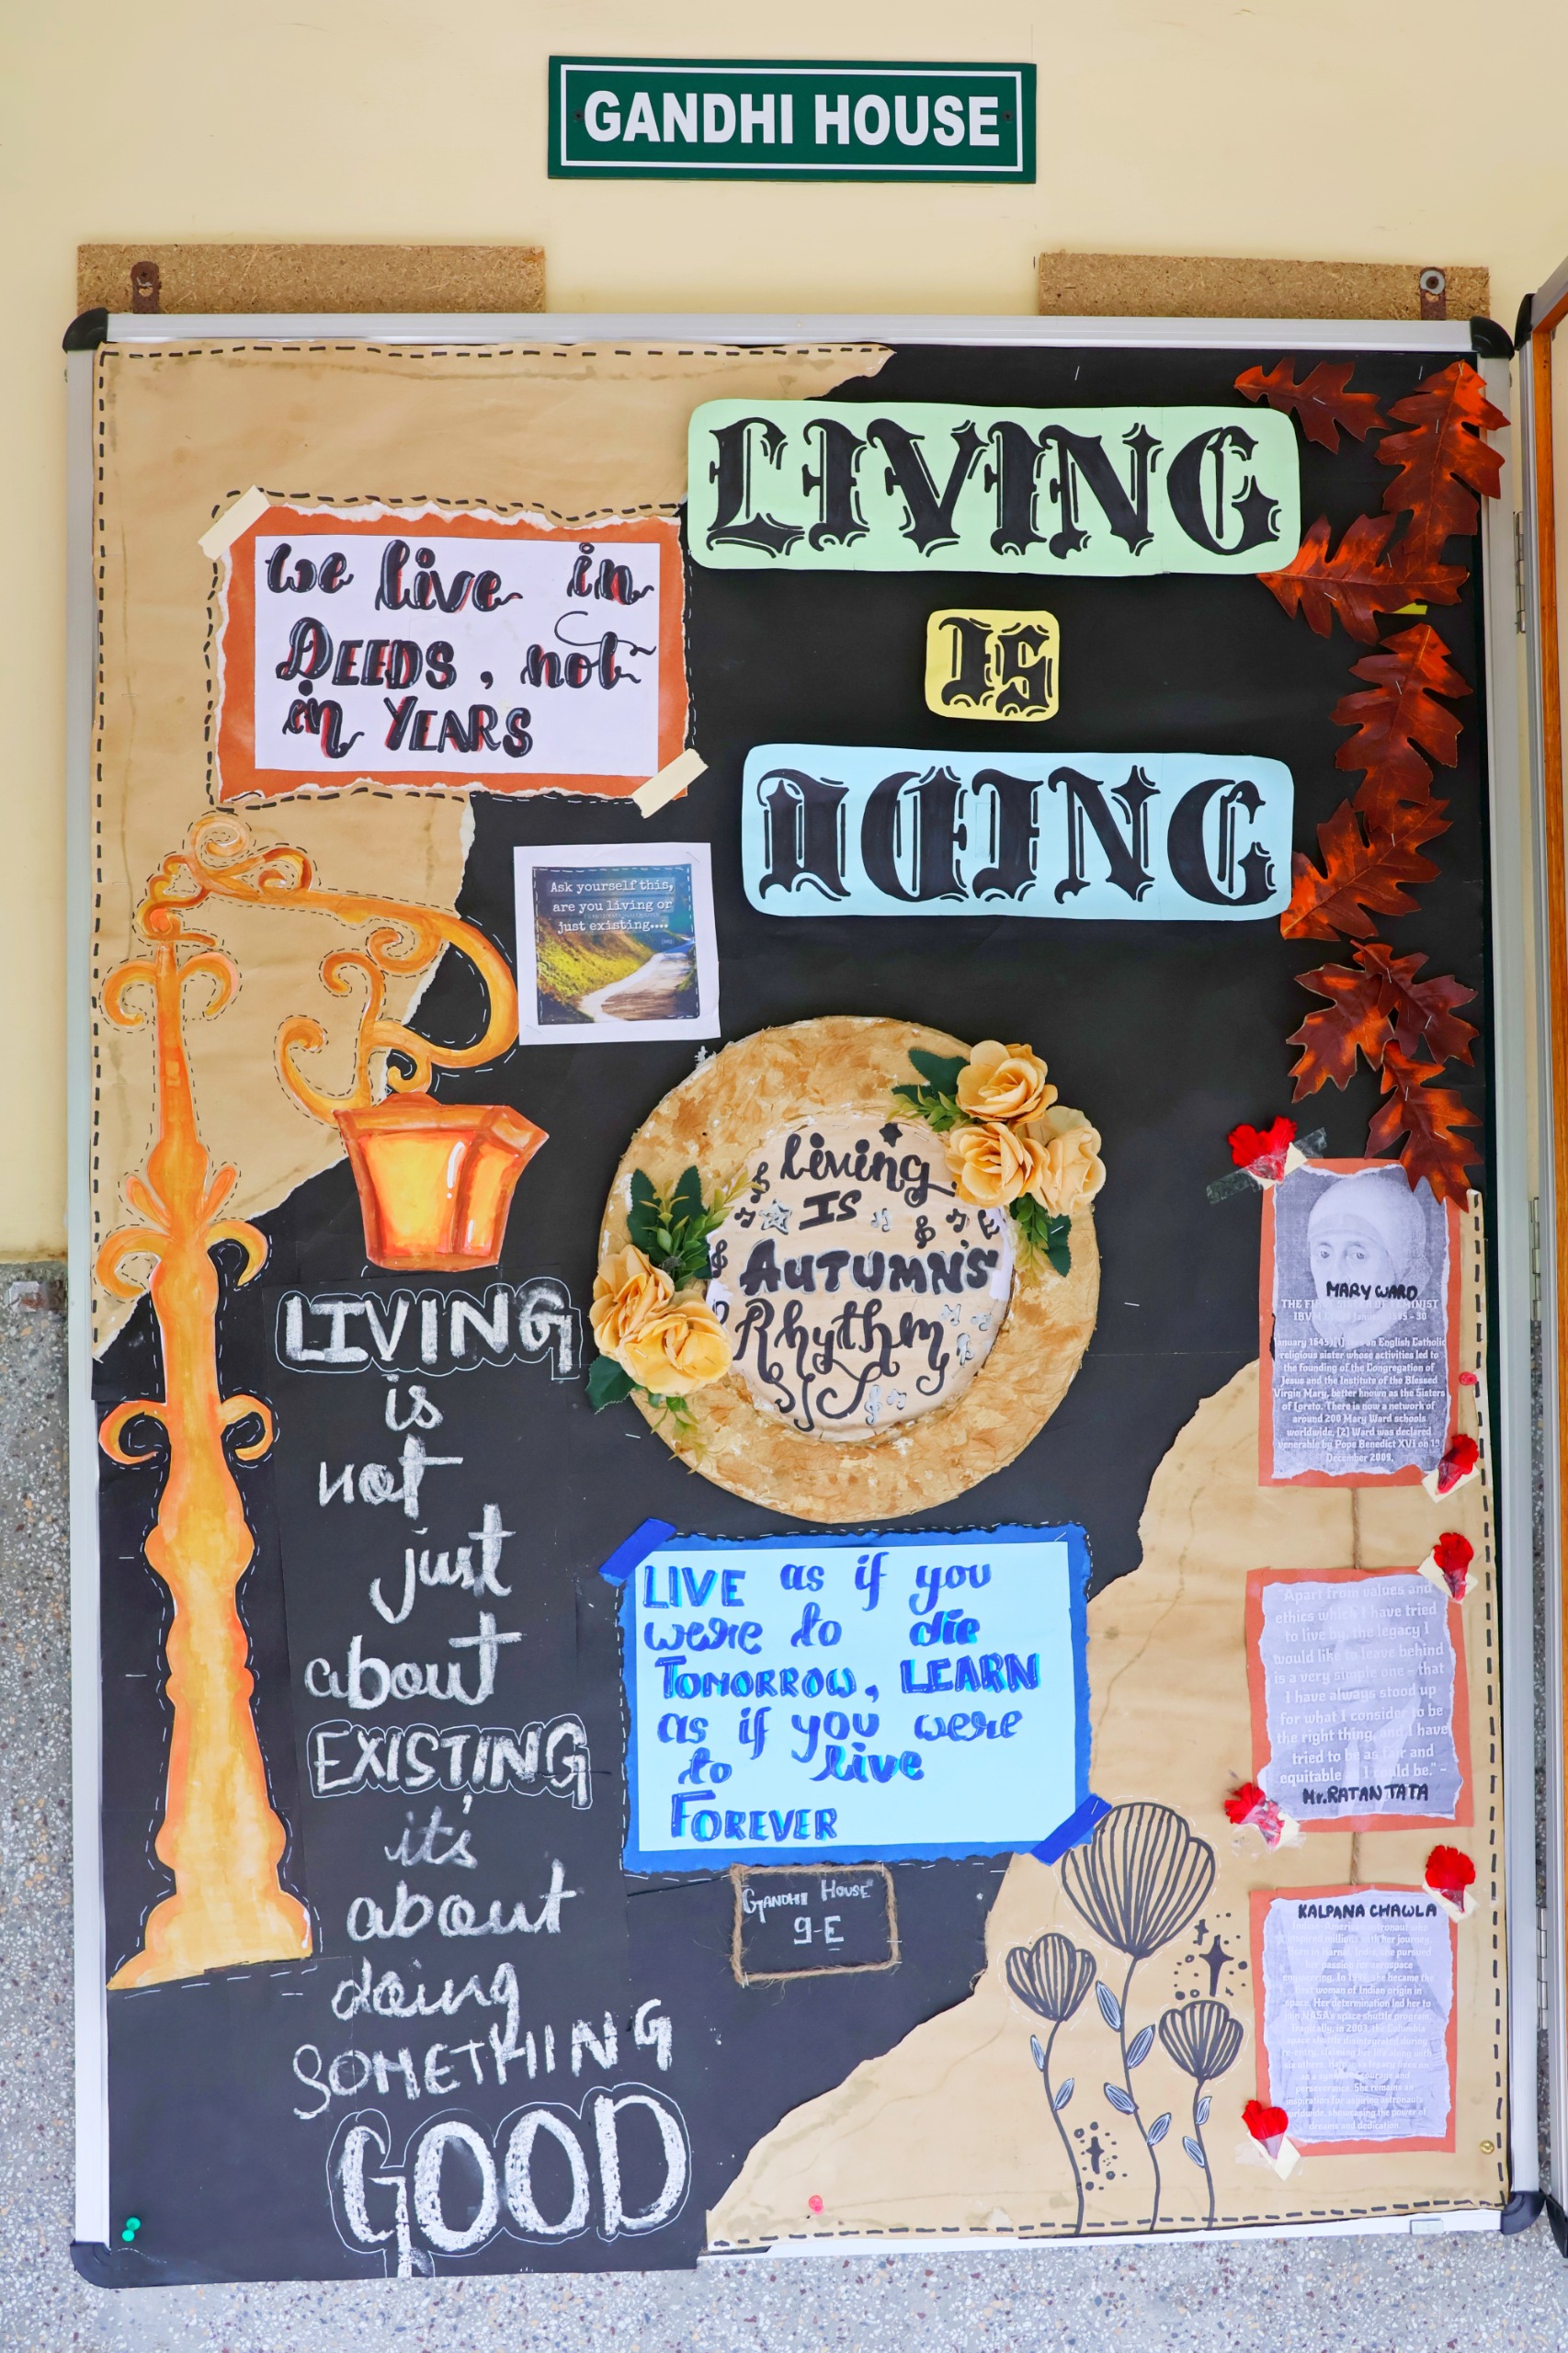 GANDHI HOUSE
LIVING
IS
DOING
we live in
DEEDS, not
in YEARS
Ask yourself this,
are you living or
just existing....
Living
IS
AUTUMN'S
Rhythm
LIVING
is
not
just
about
EXISTING
it's
about
doing
SOMETHING
GOOD
LIVE as if you
were to die
TOMORROW, LEARN
as if you were
to live
FOREVER
"GANDHI HOUSE"
9-E
MARY WARD
THE SISTER FEMINIST
IBVM
anuary 1645)[1] an English Catholic
religious sister whose activities led to
the founding of the Congregation of
Jesus and the Institute of the Blessed
Virgin Mary, better known as the Sisters
of Loreto. There is now a network of
around 200 Mary Ward schools
worldwide. [2] Ward was declared
venerable by Pope Benedict XVI on 19
December 2009.
Apart from values and
ethics which I have tried
to live by, the legacy I
would like to leave behind
is a very simple one - that
I have always stood up
for what I consider to be
the right thing, and I have
tried to be as fair and
equitable as I could be." -
Mr. RATAN TATA
KALPANA CHAWLA
Indian-American astronaut who
inspired millions with her journey.
Born in Karnal, India, she pursued
her passion for aerospace
engineering. In 1997, she became the
first woman of Indian origin in
space. Her determination led her to
join NASA's space shuttle program.
Tragically, in 2003, the Columbia
space shuttle disintegrated during
re-entry, claiming her life along with
six others. Her legacy lives on
as a symbol of courage and
perseverance. She remains an
inspiration for aspiring astronauts
worldwide, showcasing the power of
dreams and dedication.